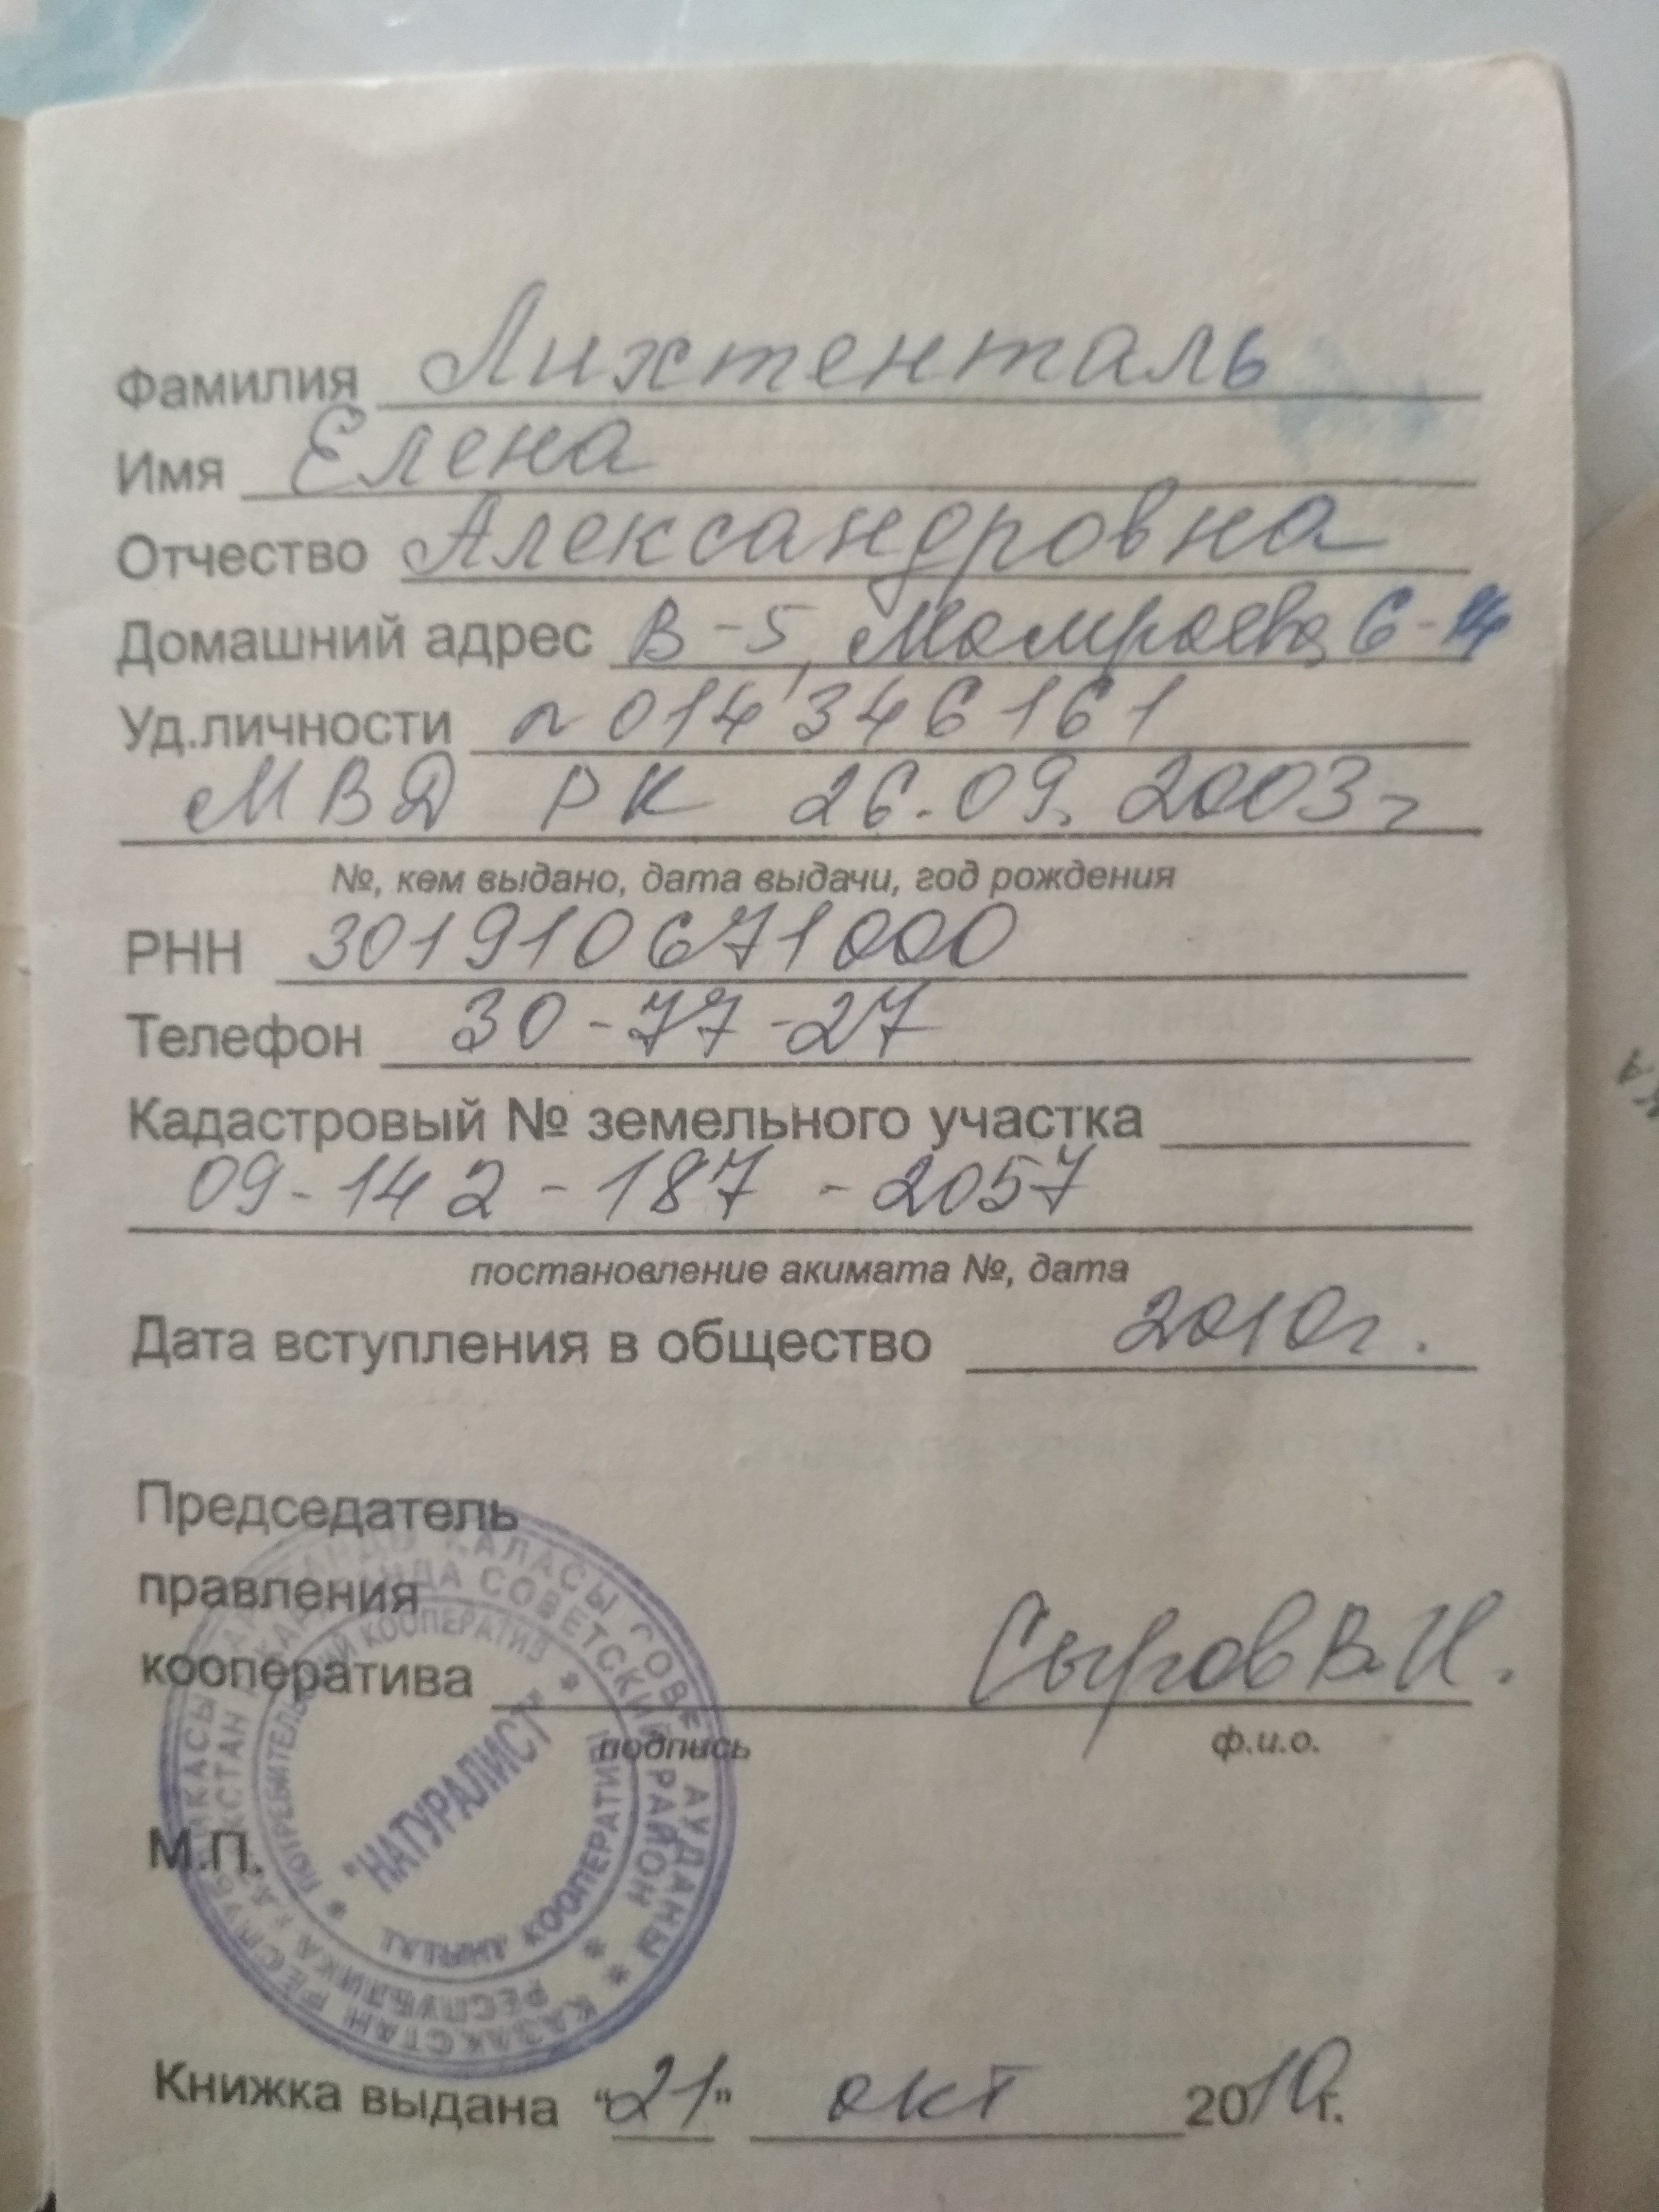 Фамилия Лихтенталь
Имя Елена
Отчество Александровна
Домашний адрес В-5, 6-14
Уд.личности № 014346161
МВД РК 26.09.2003г
№, кем выдано, дата выдачи, год рождения
РНН 301910671000
Телефон 30-77-27
Кадастровый № земельного участка
09-142-187-2057
постановление акимата №, дата
Дата вступления в общество 2010г.
Председатель
правления
кооператива Сыров В.И.
подпись ф.и.о.
М.П.
ҚАЛАСЫ СОВЕТ АУДАНЫ * ҚАЗАҚСТАН РЕСПУБЛИКАСЫ
СОВЕТСКИЙ РАЙОН * РЕСПУБЛИКА
ПОТРЕБИТЕЛЬСКИЙ КООПЕРАТИВ *
ТҰТЫНУ КООПЕРАТИВІ
"НАТУРАЛИСТ"
Книжка выдана "21" окт 2010г.